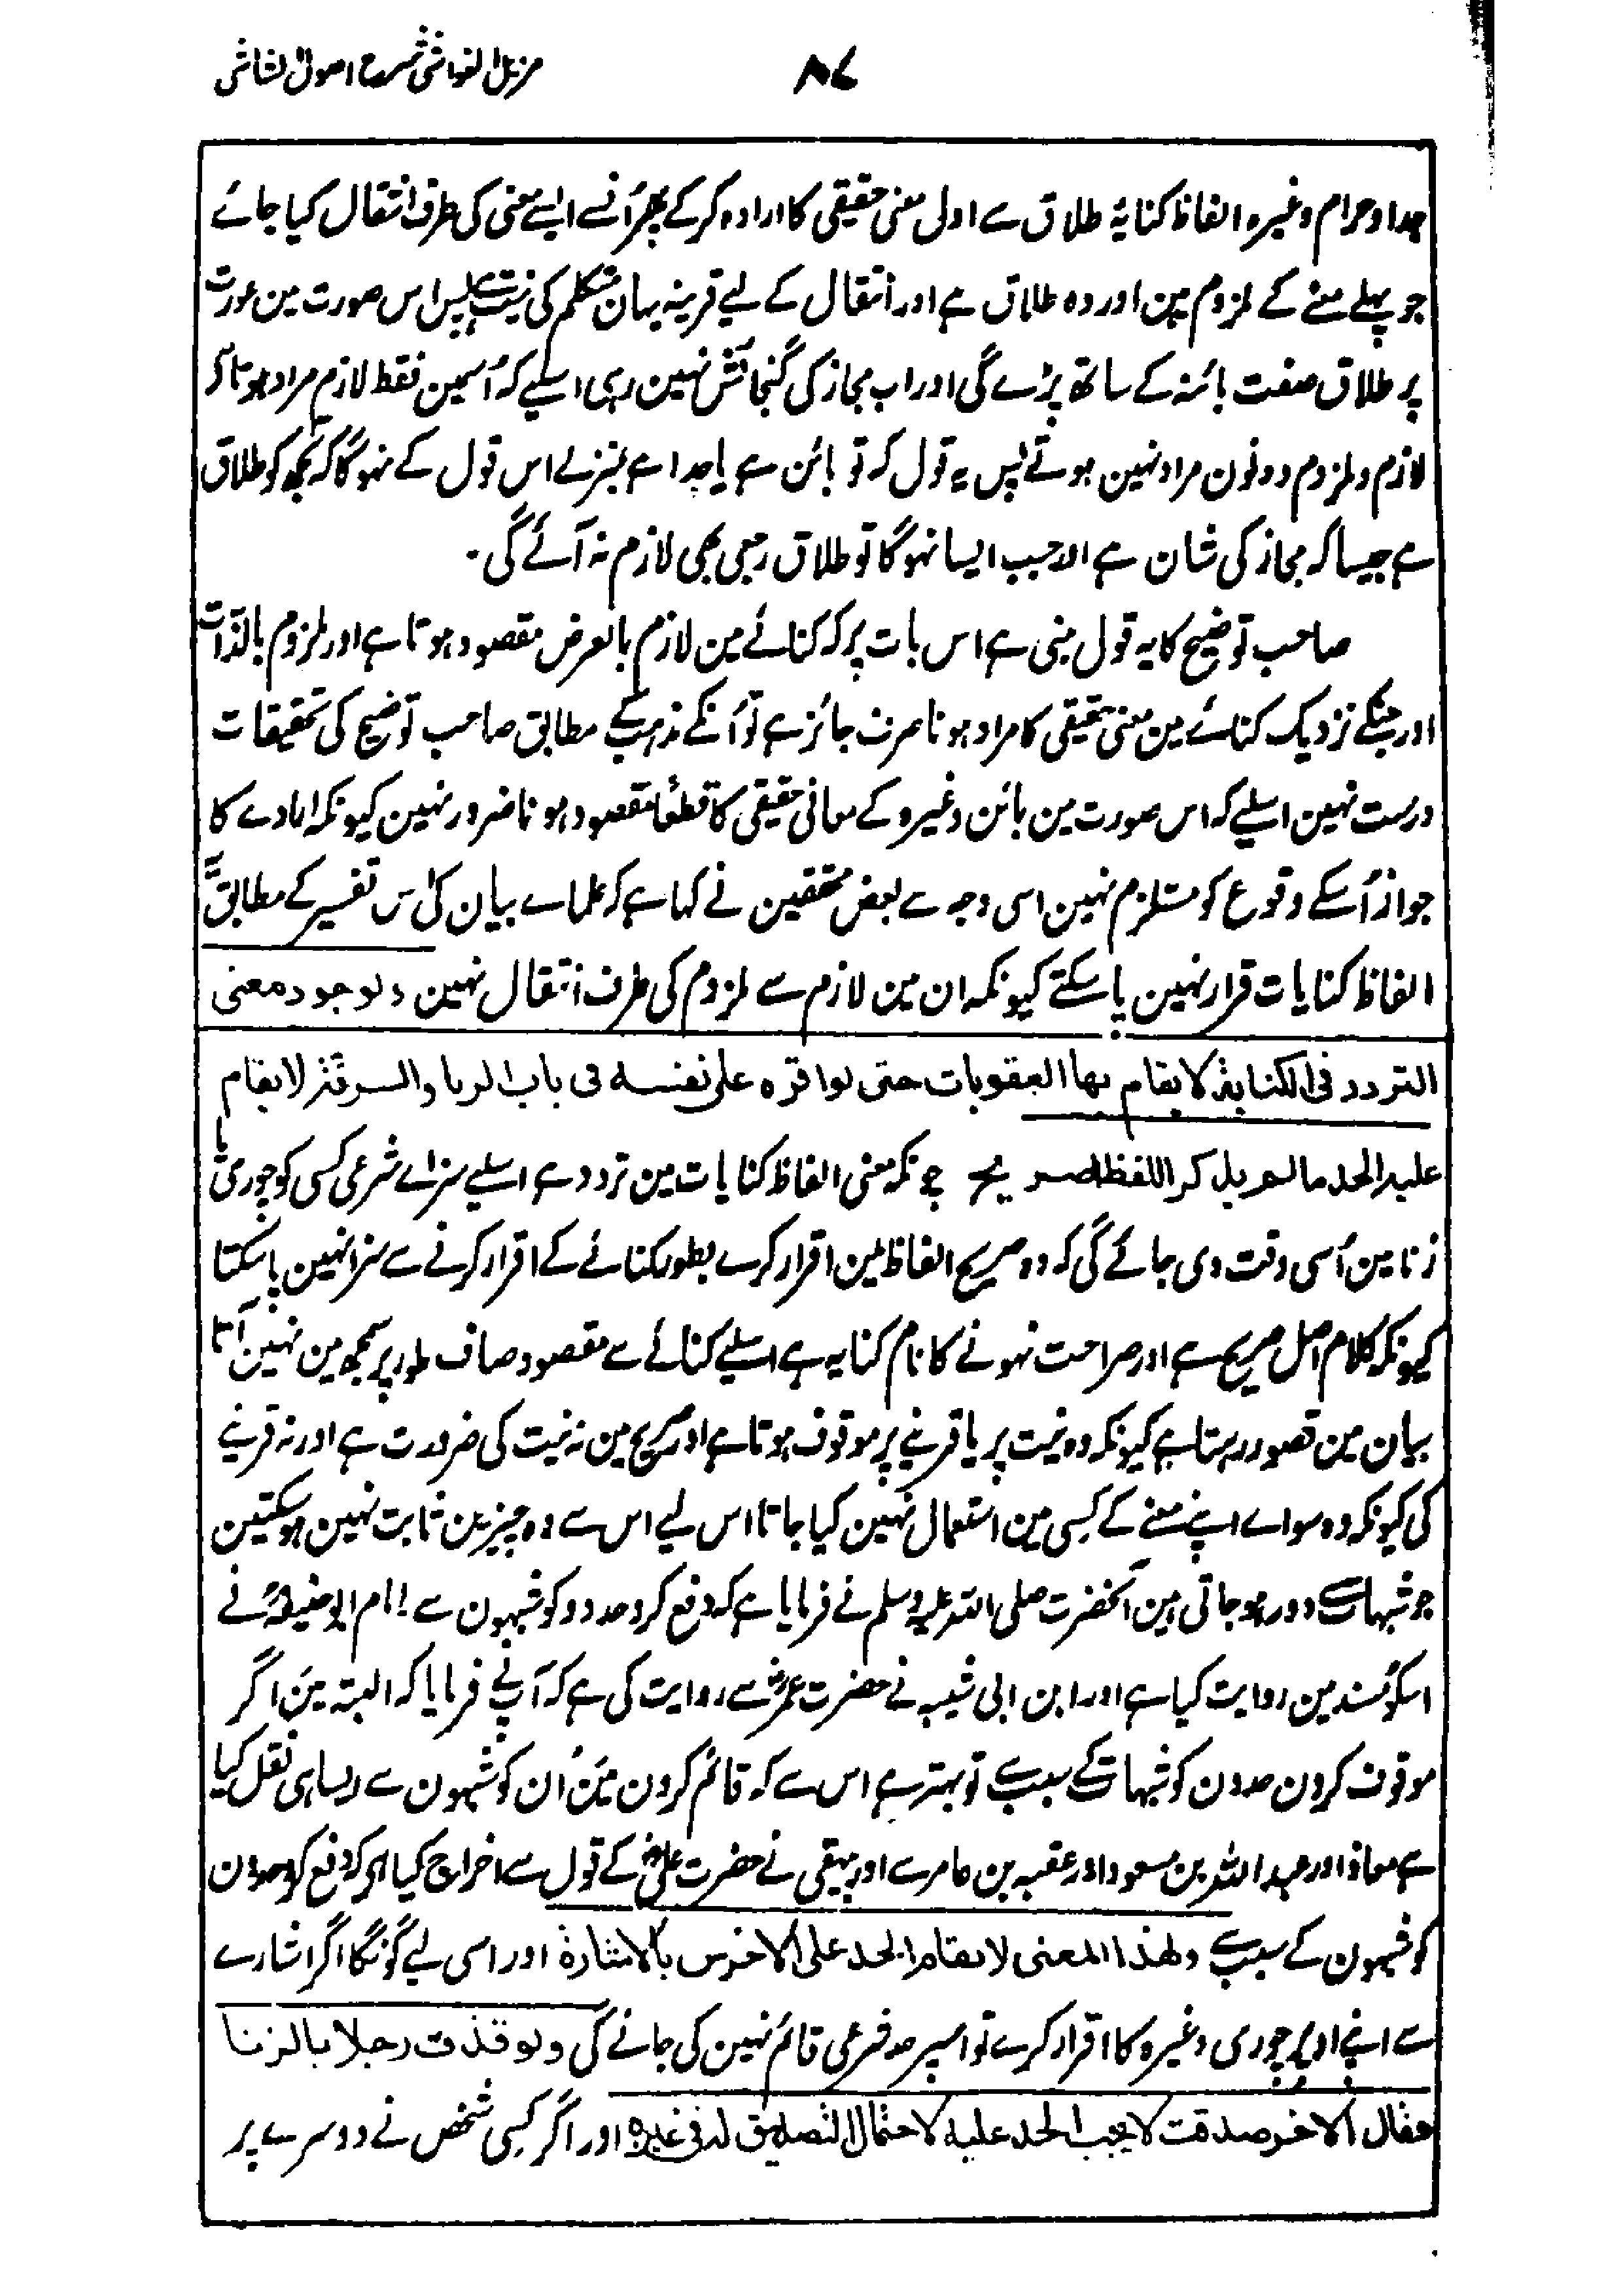 مزیل الغواشی شرح اصول الشاشی
۸۷
جدا و حرام وغیرہ الفاظ کنایۂ طلاق سے اولی معنی حقیقی کا ارادہ کرکے پھر اُنسے ایسے معنی کی طرف انتقال کیا جائے
جو پہلے معنے کے ملزوم ہین اور وہ طلاق ہے اور انتقال کے لیے قرینہ یہان متکلم کی نیت ہے پس اس صورت مین عورت
پر طلاق صفت بائنہ کے ساتھ پڑے گی اور اب مجاز کی گنجائش نہین رہی اسلیے کہ اُسمین فقط لازم مراد ہوتا ہے
لازم و ملزوم دونون مراد نہین ہوتے پس یہ قول کہ تو بائن ہے یا جدا ہے بمنزلے اس قول کے نہوگا کہ تجھ کو طلاق
ہے جیسا کہ مجاز کی شان ہے اور جب ایسا نہوگا تو طلاق رجعی بھی لازم نہ آئے گی ۔
صاحب توضیح کا یہ قول مبنی ہے اس بات پر کہ کنائے مین لازم بالعرض مقصود ہوتا ہے اور ملزوم بالذات
اور جنکے نزدیک کنائے مین معنی حقیقی کا مراد ہونا صرف جائز ہے تو اُنکے مذہب کے مطابق صاحب توضیح کی تحقیقات
درست نہین اسلیے کہ اس صورت مین بائن وغیرہ کے معانی حقیقی کا قطعًا مقصود ہونا ضرور نہین کیونکہ ارادے کا
جواز اُسکے وقوع کو مستلزم نہین اسی وجہ سے بعض محققین نے کہا ہے کہ علماے بیان کی اس تفسیر کے مطابق یہ
الفاظ کنایات قرار نہین پا سکتے کیونکہ ان مین لازم سے ملزوم کی طرف انتقال نہین ولوجود معنی
التردد فی الکنایۃ لا یقام بھا العقوبات حتی لو اقرہ علی نفسہ فی باب الربا والسرقۃ لا یقام
علیہ الحد مالم یذکر اللفظ الصریح چونکہ معنی الفاظ کنایات مین تردد ہے اسلیے سزاے شرعی کسی کو چوری یا
زنا مین اُسی وقت دی جائے گی کہ وہ صریح الفاظ مین اقرار کرے بطور کنائے کے اقرار کرنے سے سزا نہین پا سکتا
کیونکہ کلام اصل صریح ہے اور صراحت نہونے کا نام کنایہ ہے اسلیے کنائے سے مقصود صاف طور پر سمجھ مین نہین آتا
بیان مین قصور رہتا ہے کیونکہ وہ نیت پر یا قرینے پر موقوف ہوتا ہے اور صریح مین نہ نیت کی ضرورت ہے اور نہ قرینے
کی کیونکہ وہ سواے اپنے معنے کے کسی مین استعمال نہین کیا جاتا اس لیے اس سے وہ چیزین ثابت نہین ہوسکتین
جو شبہات سے دور ہو جاتی ہین آنحضرت صلی اللہ علیہ وسلم نے فرمایا ہے کہ دفع کرو حدود کو شبہون سے امام ابو حنیفہؒ نے
اسکو مسند مین روایت کیا ہے اور ابن ابی شیبہ نے حضرت عمرؓ سے روایت کی ہے کہ آپنے فرمایا کہ البتہ مین اگر
موقوف کرون حدون کو شبہات کے سبب سے تو بہتر ہے اس سے کہ قائم کرون مین اُن کو شبہون سے ایسا ہی نقل کیا
ہے معاذ اور عبد اللہ بن مسعود اور عقبہ بن عامر سے اور بیہقی نے حضرت علیؓ کے قول سے اخراج کیا ہے کہ دفع کرو حدون
کو شبہون کے سبب سے ولھذا المعنی لا یقام الحد علی الاخرس بالاشارۃ اور اسی لیے گونگا اگر اشارے
سے اپنے اوپر چوری وغیرہ کا اقرار کرے تو اسپر حد شرعی قائم نہین کی جائے گی ولو قذف رجلا بالزنا
فقال الاخر صدقت لا یجب الحد علیہ لاحتمال التصدیق لہ فی غیرہ اور اگر کسی شخص نے دوسرے پر